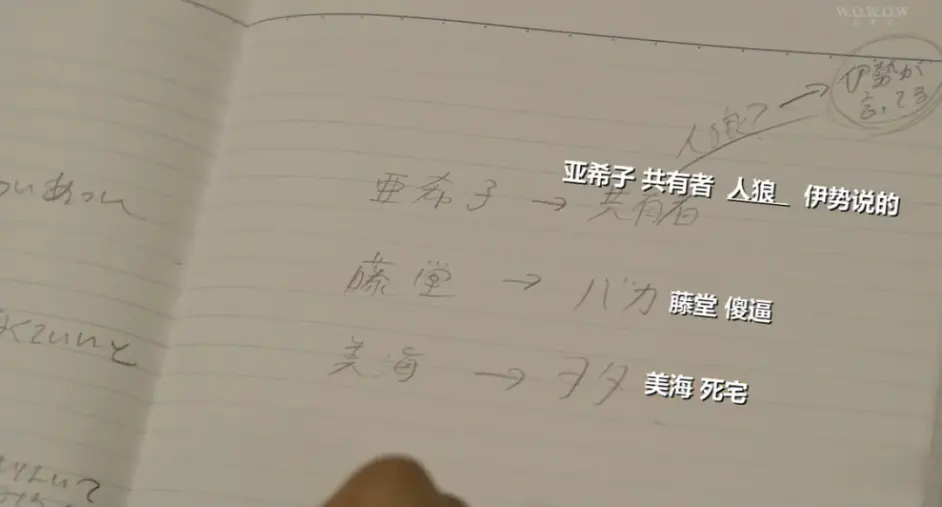 WOWOW
伊勢が
言ってる
人狼?
亜希子 共有者 人狼 伊勢说的
亜希子 → 共有者
藤堂 → バカ
藤堂 傻逼
美海 → ヲタ
美海 死宅
くていいと